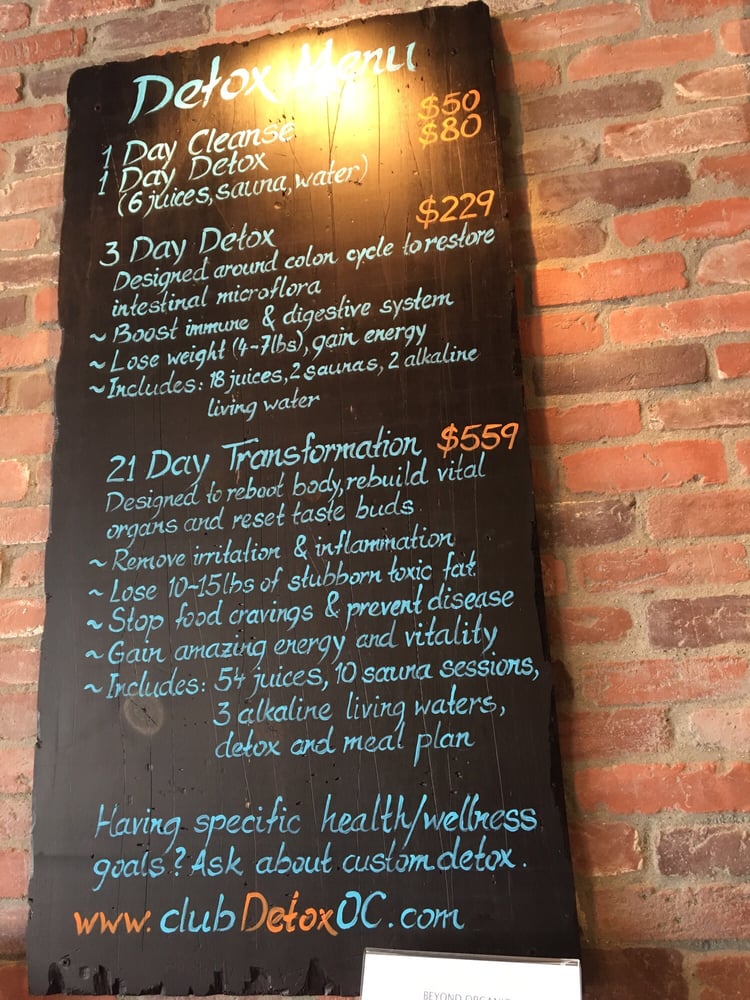 Detox Menu
1 Day Cleanse $50
1 Day Detox $80
(6 juices, sauna, water)
3 Day Detox $229
Designed around colon cycle to restore
intestinal microflora
~ Boost immune & digestive system
~ Lose weight (4-7lbs), gain energy
~ Includes: 18 juices, 2 saunas, 2 alkaline
living water
21 Day Transformation $559
Designed to reboot body, rebuild vital
organs and reset taste buds.
~ Remove irritation & inflammation
~ Lose 10-15lbs of stubborn toxic fat
~ Stop food cravings & prevent disease
~ Gain amazing energy and vitality
~ Includes: 54 juices, 10 sauna sessions,
3 alkaline living waters,
detox and meal plan
Having specific health/wellness
goals? Ask about custom detox.
www.clubDetoxOC.com
BEYOND ORGANIC